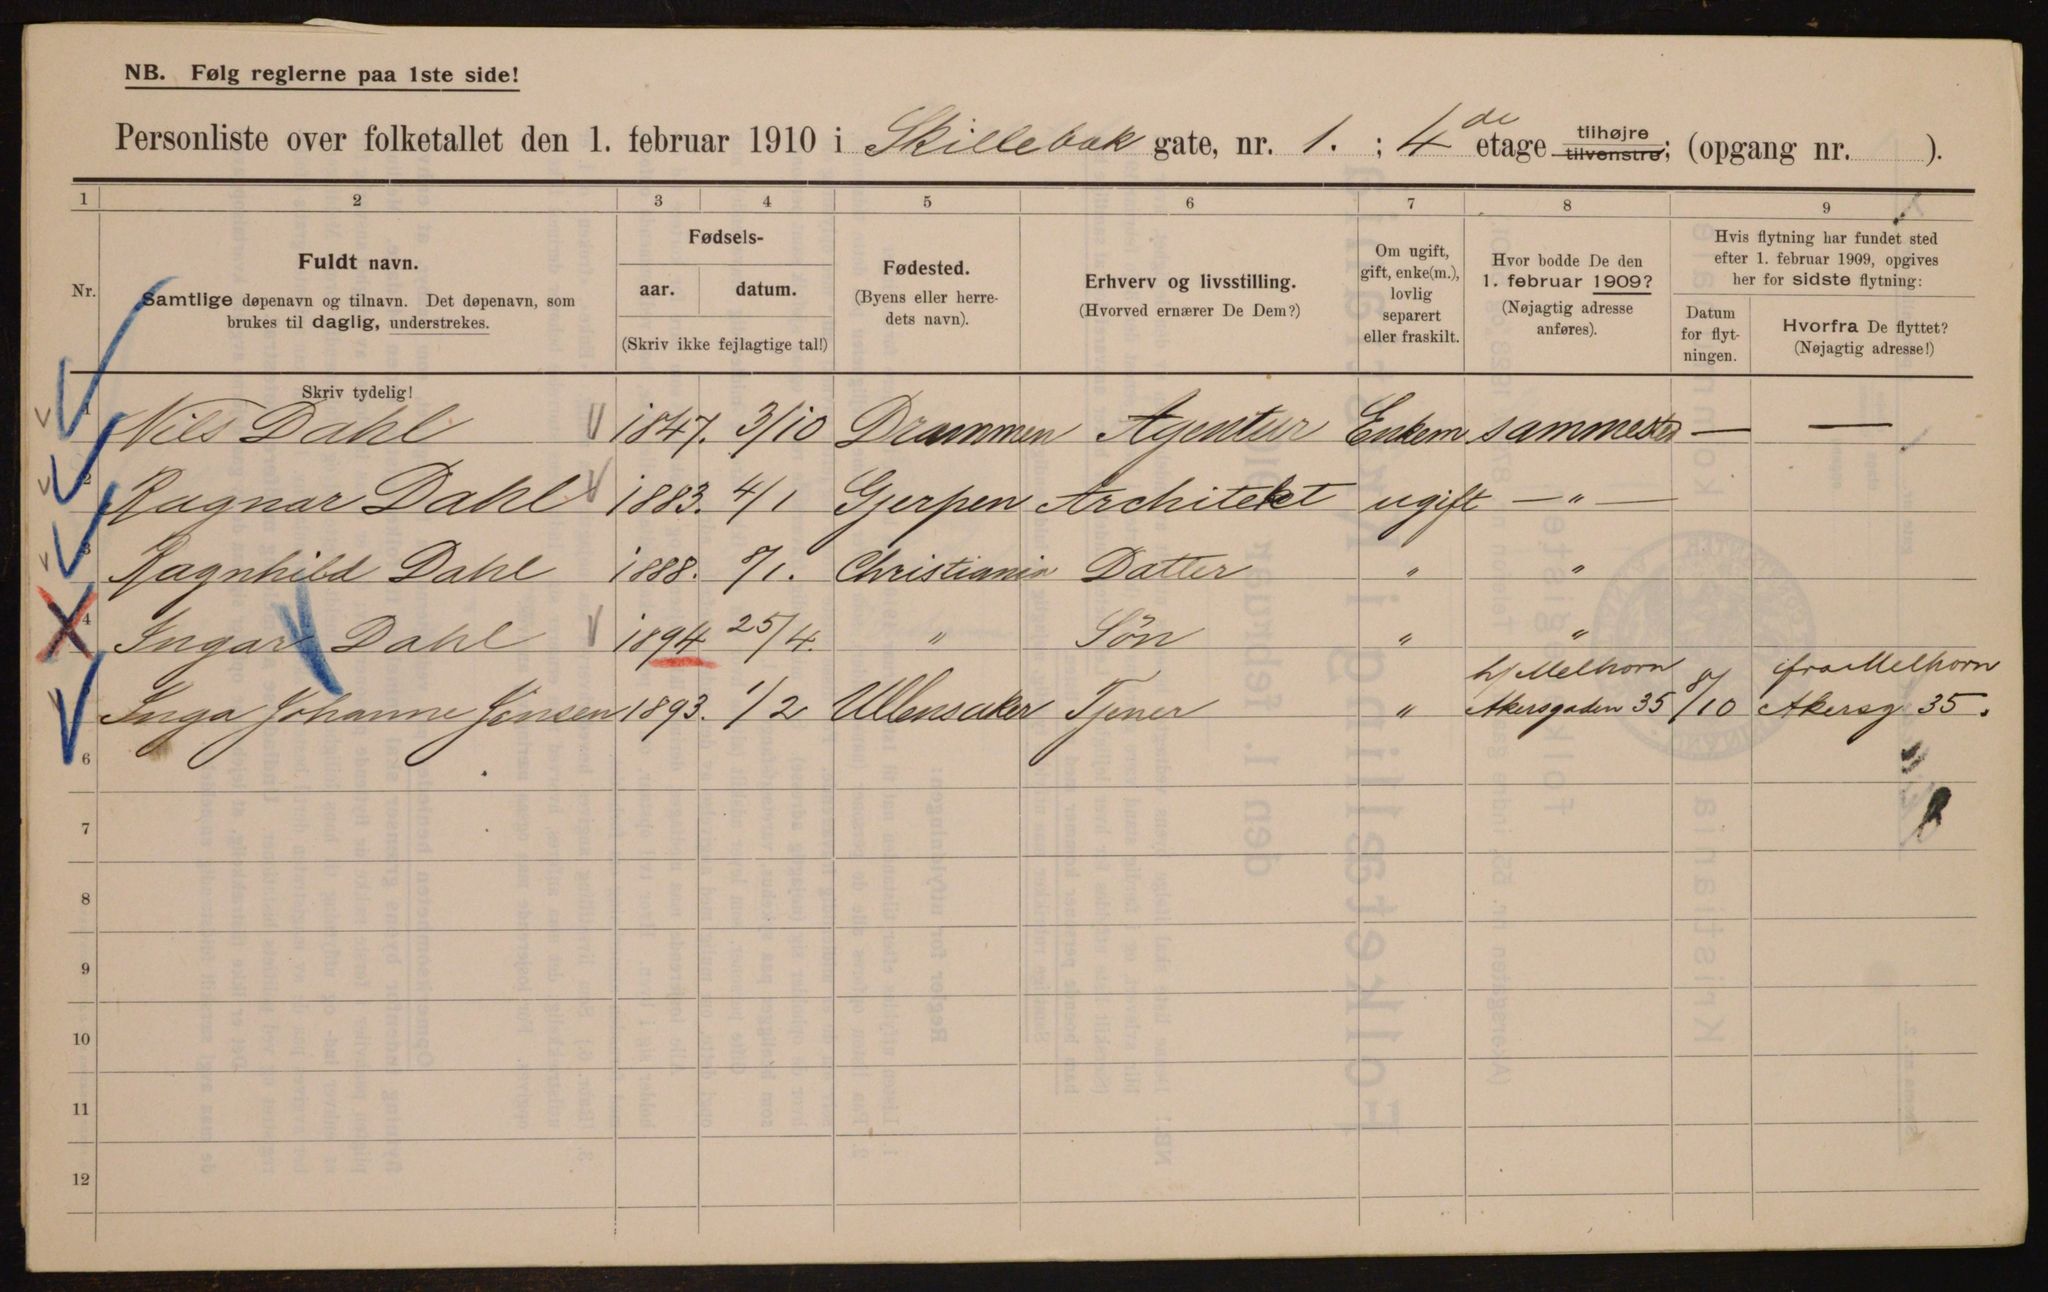 NB. Følg reglerne paa 1ste side!
Personliste over folketallet den 1. februar 1910 i Skillebæk gate, nr. 1. ; 4 de etage tilhøjre tilvenstre; (opgang nr. ).
1 2 3 4 5 6 7 8 9
Nr.
Fuldt navn.
Samtlige døpenavn og tilnavn. Det døpenavn, som
brukes til daglig, understrekes.
Fødsels-
aar. datum.
(Skriv ikke fejlagtige tal!)
Fødested.
(Byens eller herre-
dets navn).
Erhverv og livsstilling.
(Hvorved ernærer De Dem?)
Om ugift,
gift, enke(m.),
lovlig
separert
eller fraskilt.
Hvor bodde De den
1. februar 1909?
(Nøjagtig adresse
anføres).
Hvis flytning har fundet sted
efter 1. februar 1909, opgives
her for sidste flytning:
Datum
for flyt-
ningen.
Hvorfra De flyttet?
(Nøjagtig adresse!)
Skriv tydelig!
1 Nils Dahl 1847. 3/10 Drammen Agentur Enkem sammested — —
2 Ragnar Dahl 1883. 4/1 Gjerpen Architekt ugift — " —
3 Ragnhild Dahl 1888. 8/1. Christiania Datter " "
4 Ingar Dahl 1894 25/4. " Sön " "
h/ Melhorn fra Melhorn
Inga Johanne Jensen 1893. 1/2 Ullensaker Tjener " Akersgaden 35 8/10 Akersg 35.
6
7
8
9
10
11
12